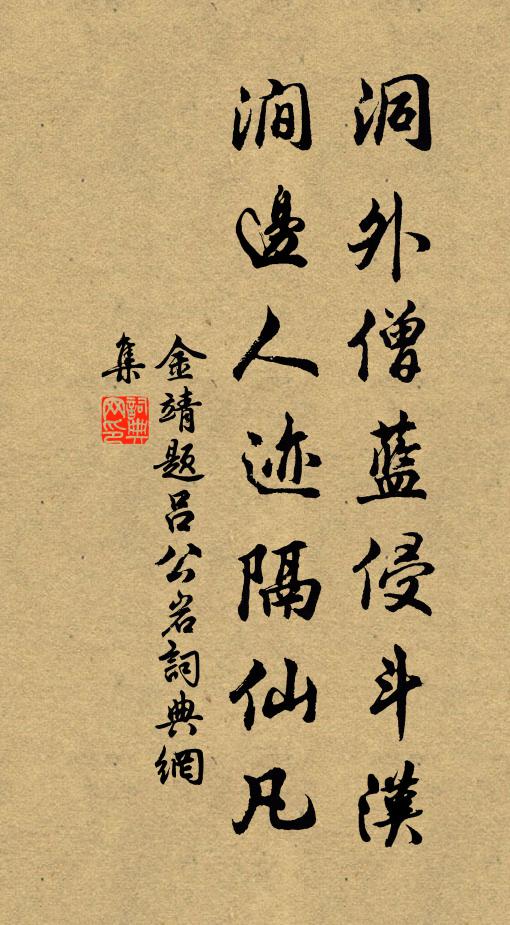 洞外僧藍侵斗漢
澗邊人迹隔仙凡
金靖題呂公岩詞典網
集
詞典網印